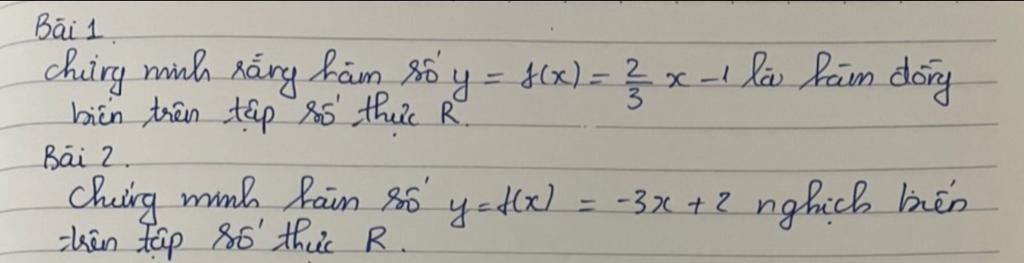 Bài 1
Chứng minh rằng hàm số y = f(x) = 2/3 x - 1 là hàm đồng
biến trên tập số thực R.
Bài 2.
Chứng minh hàm số y = f(x) = -3x + 2 nghịch biến
trên tập số thực R.